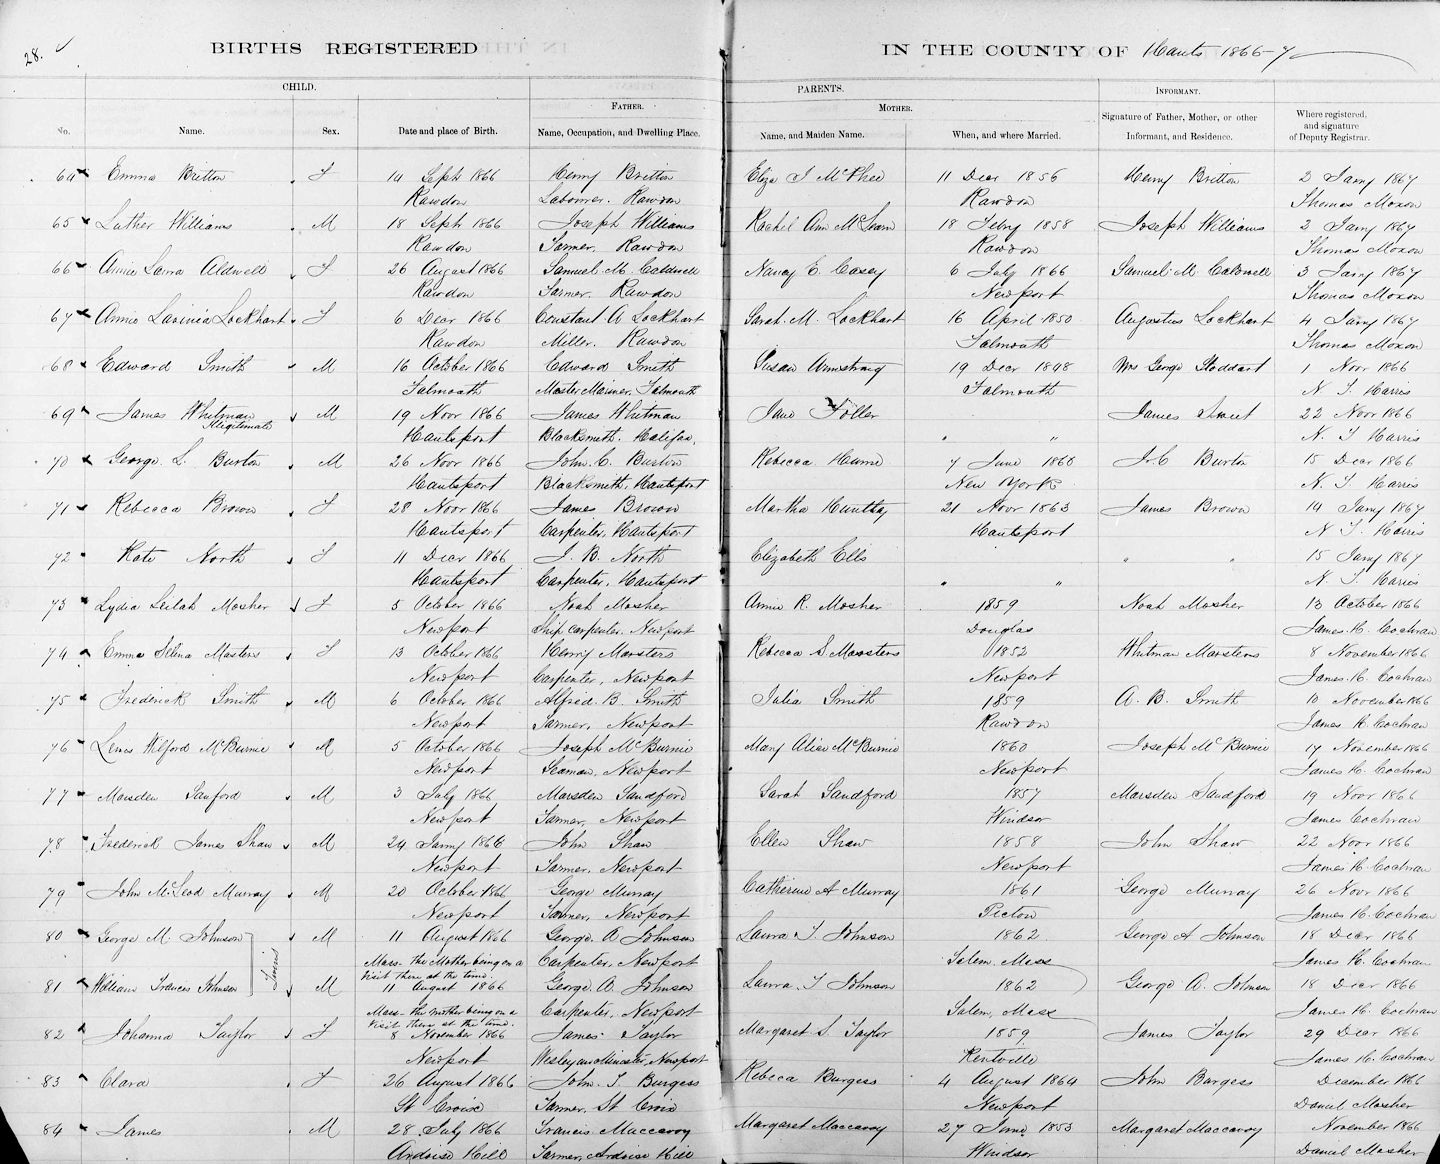 28.
BIRTHS REGISTERED IN THE COUNTY OF Hants 1866-7
CHILD. PARENTS. INFORMANT.
FATHER. MOTHER.
No. Name. Sex. Date and place of Birth. Name, Occupation, and Dwelling Place. Name, and Maiden Name. When, and where Married. Signature of Father, Mother, or other Informant, and Residence. Where registered, and signature of Deputy Registrar.
64 Emma Britton F 14 Sept 1866 Henry Britton Eliza J McPhee 11 Decr 1856 Henry Britton 2 Jany 1867
Rawdon Labourer. Rawdon Rawdon Thomas Moxon
65 Luther Williams M 18 Sept 1866 Joseph Williams Rachel Ann 18 Feby 1858 Joseph Williams 2 Jany 1867
Rawdon Farmer, Rawdon Rawdon Thomas Moxon
66 Annie Laura Aldwell F 26 August 1866 Samuel M. Caldwell Nancy E. Casey 6 July 1866 Samuel M Caldwell 3 Jany 1867
Rawdon Farmer. Rawdon Newport Thomas Moxon
67 Annie Lavinia Lockhart F 6 Decr 1866 Constant A Lockhart Sarah M. Lockhart 16 April 1850 Augustus Lockhart 4 Jany 1867
Rawdon Miller. Rawdon Falmouth Thomas Moxon
68 Edward Smith M 16 October 1866 Edward Smith Susan Armstrong 19 Decr 1848 Mrs George Stoddart 1 Novr 1866
Falmouth Master Mariner, Falmouth Falmouth N. T. Harris
69 James Whitman M 19 Novr 1866 James Whitman Jane Foller James Street 22 Novr 1866
Illegitimate Hantsport Blacksmith. Halifax, " " N. T. Harris
70 George L. Burton M 26 Novr 1866 John. C. Burton Rebecca Hume 7 June 1860 Jr. C Burton 15 Decr 1866
Hantsport Blacksmith, Hantsport New York N. T. Harris
71 Rebecca Brown F 28 Novr 1866 James Brown Martha 21 Novr 1863 James Brown 14 Jany 1867
Hantsport Carpenter, Hantsport Hantsport N. T. Harris
72 Kate North F 11 Decr 1866 J. B. North Elizabeth Ells " " 15 Jany 1867
Hantsport Carpenter, Hantsport " " N. T. Harris
73 Lydia Leilah Mosher F 5 October 1866 Noah Mosher Annie R. Mosher 1859 Noah Mosher 13 October 1866
Newport Ship carpenter. Newport Douglas James H. Cochran
74 Emma Selina Masters F 13 October 1866 Henry Marsters Rebecca S Marsters 1852 Whitman Marsters 8 November 1866
Newport Carpenter, Newport Newport James H. Cochran
75 Frederick Smith M 6 October 1866 Alfred. B. Smith Julia Smith 1859 A. B. Smith 10 November 1866
Newport Farmer, Newport Rawdon James H. Cochran
76 Lewis Wilford McBurnie M 5 October 1866 Joseph McBurnie Mary Alice McBurnie 1860 Joseph McBurnie 17 November 1866
Newport Seaman, Newport Newport James H. Cochran
77 Marsden Sanford M 3 July 1866 Marsden Sandford Sarah Sandford 1857 Marsden Sandford 19 Novr 1866
Newport Farmer, Newport Windsor James Cochran
78 Frederick James Shaw M 24 Jany 1866 John Shaw Ellen Shaw 1858 John Shaw 22 Novr 1866
Newport Farmer. Newport Newport James H. Cochran
79 John McLeod Murray M 20 October 1866 George Murray Catherine A Murray 1861 George Murray 26 Novr 1866
Newport Farmer, Newport Picton James H. Cochran
80 George M. Johnson M 11 August 1866 George. A Johnson Laura. T. Johnson 1862 George A Johnson 18 Decr 1866
Twins Mass- the Mother being on a visit there at the time. Carpenter, Newport Salem. Mass James H. Cochran
81 William Francis Johnson M 11 August 1866 George. A. Johnson Laura. T Johnson 1862 George A. Johnson 18 Decr 1866
Mass- the mother being on a visit there at the time. Carpenter, Newport Salem, Mass James H. Cochran
82 Johanna Taylor F 8 November 1866 James Taylor Margaret S. Taylor 1859 James Taylor 29 Decr 1866
Newport Wesleyan Minister, Newport Kentville James H. Cochran
83 Clara F 26 August 1866 John. T. Burgess Rebeca Burgess 4 August 1864 John Burgess December 1866
St Croix Farmer, St Croix Newport Daniel Mosher
84 James M 28 July 1866 Francis Maccaroy Margaret Maccaroy 27 June 1853 Margaret Maccaroy November 1866
Ardoise Hill Farmer, Ardoise Hill Windsor Daniel Mosher